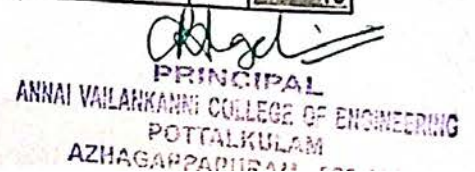 PRINCIPAL
ANNAI VAILANKANNI COLLEGE OF ENGINEERING
POTTALKULAM
AZHAGAPPAPURAM